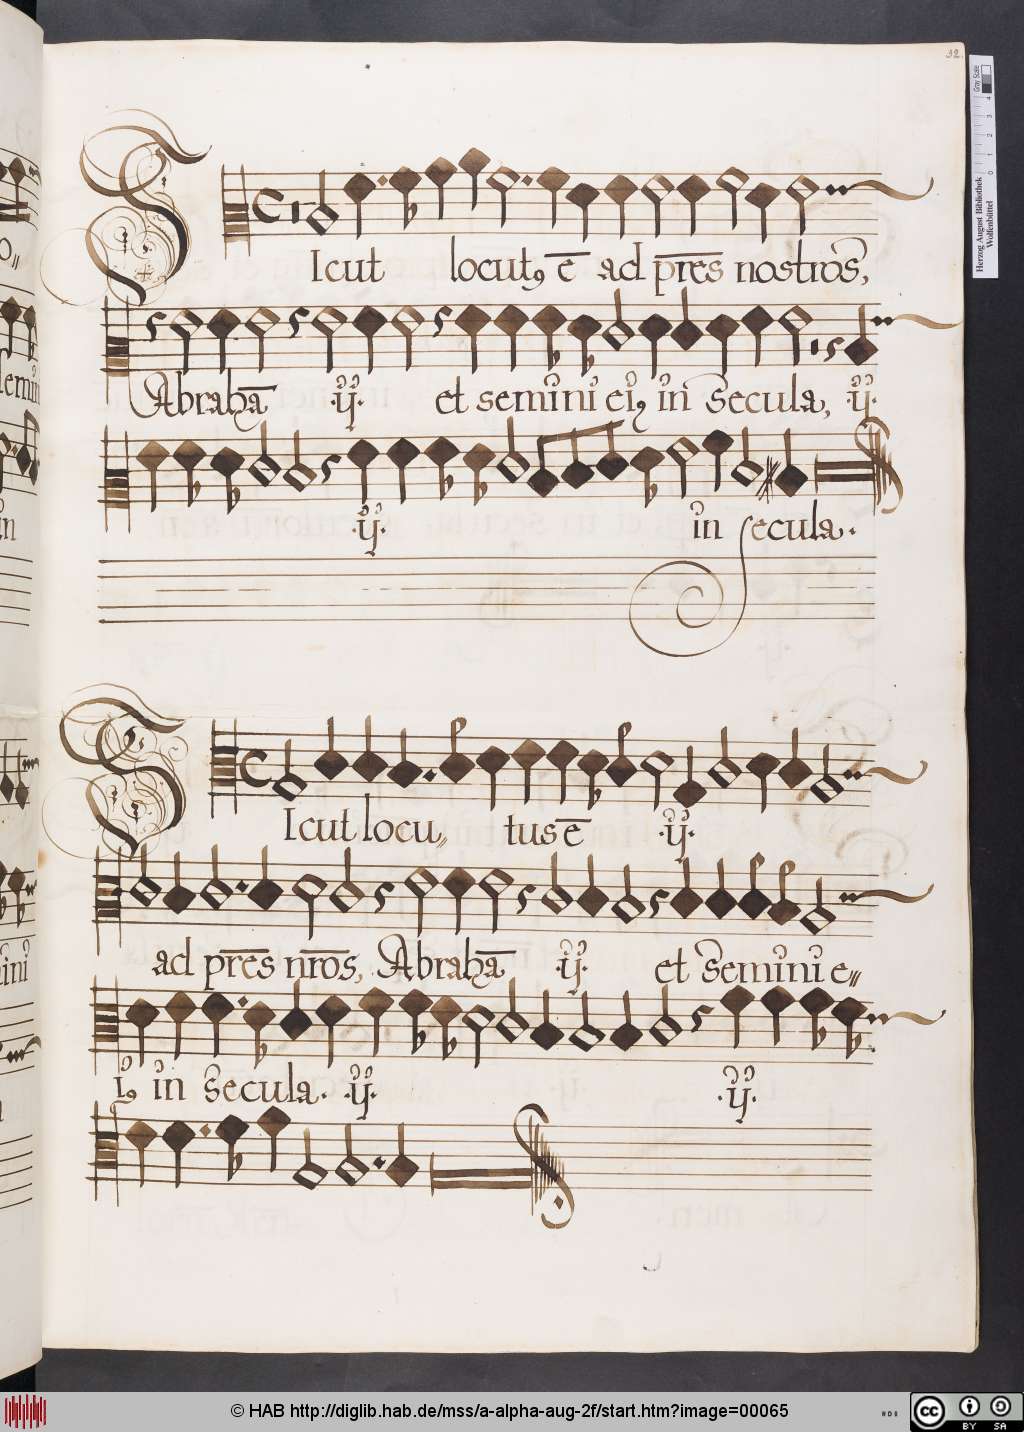 32.
SIcut locutꝯ ē ad p̄res nostros,
Abrahā ·ij· et semini eiꝯ in secula, ·ij·
·ij· in secula·
SIcut locu〃 tus ē ·ij·
ad p̄res n̄ros, Abrahā ·ij· et semini e〃
iꝯ in secula· ·ij· ·ij·
Gray Scale
0 1 2 3 4
Herzog August Bibliothek
Wolfenbüttel
© HAB http://diglib.hab.de/mss/a-alpha-aug-2f/start.htm?image=00065
cc BY SA